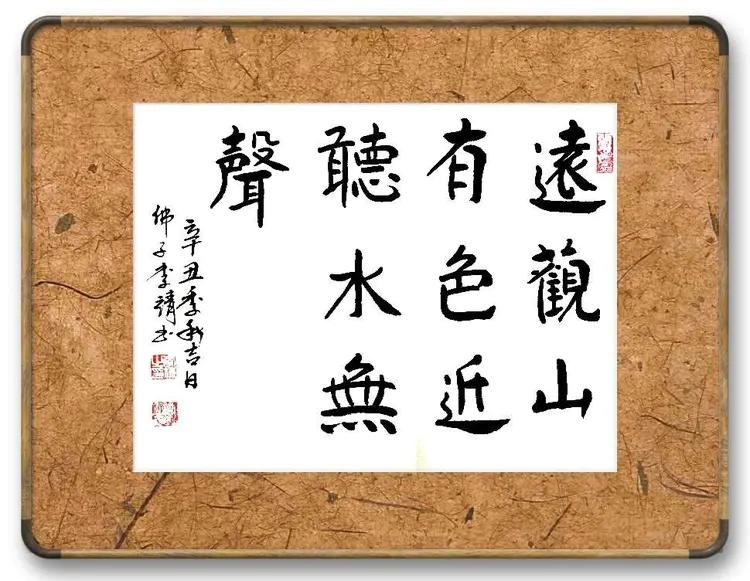 遠觀山
有色近
聽水無
聲
辛丑季秋吉日
佛子李靖书